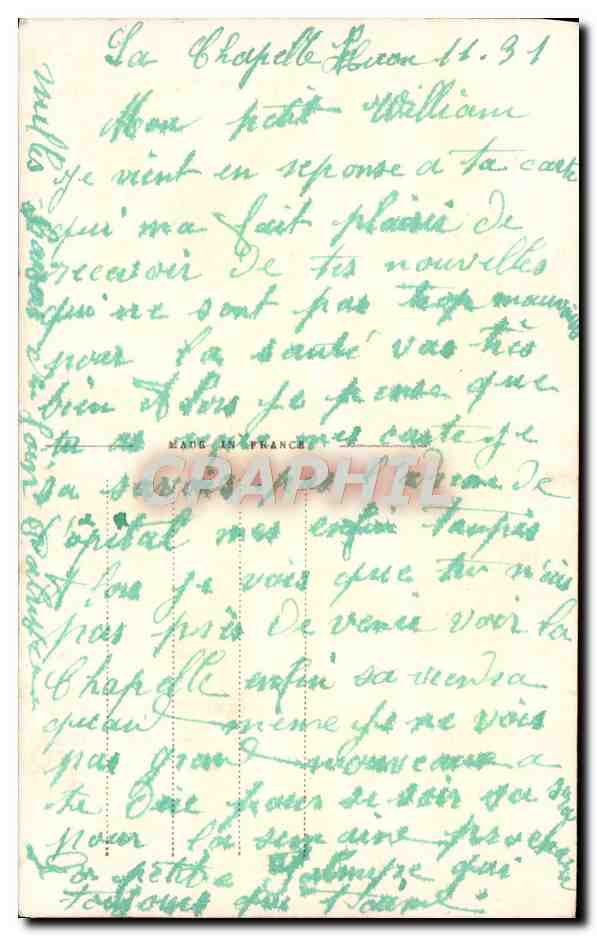 La Chapelle 11.31
Mon petit William
Je vient en reponse a ta carte
qui ma fait plaisir de
recevoir de tes nouvelles
qui ne sont pas trop mauvaises
pour la santé vas très
bien Alors je pense que
tu as mes carte je
MADE IN FRANCE
CPARAMA
sa savais pas de
l'opital mes enfin tanpis
Alors je vois que tu n'ais
pas près de venir voir la
Chapelle enfin sa viendra
quand meme je ne vois
pas grand nouveaux a
te dire pour se soir sa sera
pour la semaine prochaine
Ta petite qui
toujours qui t'aime
milles de ton